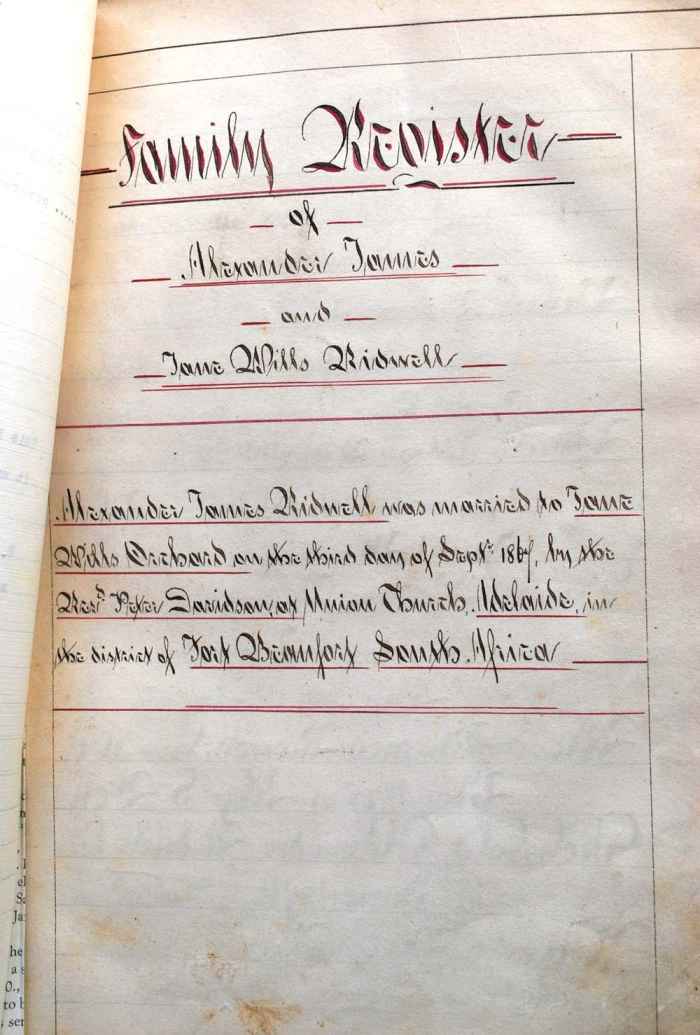 Family Register
of
Alexander James
and
Jane Wills Kidwell
Alexander James Kidwell was married to Jane
Wills Orchard on the third day of Septr. 1867, by the
Revd. Peter Davidson, at Union Church, Adelaide, in
the district of Fort Beaufort South Africa